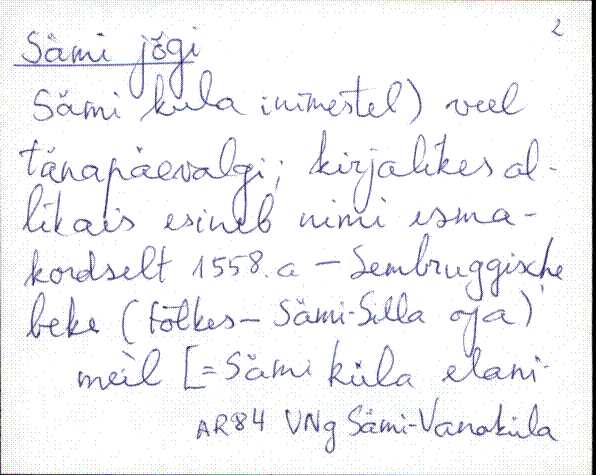 2
Sämi jõgi
Sämi küla inimestel) veel
tänapäevalgi; kirjalikes al-
likais esineb nimi esma-
kordselt 1558. a – Sembruggische
beke (tõlkes – Sämi-Silla oja)
meil [= Sämi küla elani-
AR84 VNg Sämi-Vanaküla